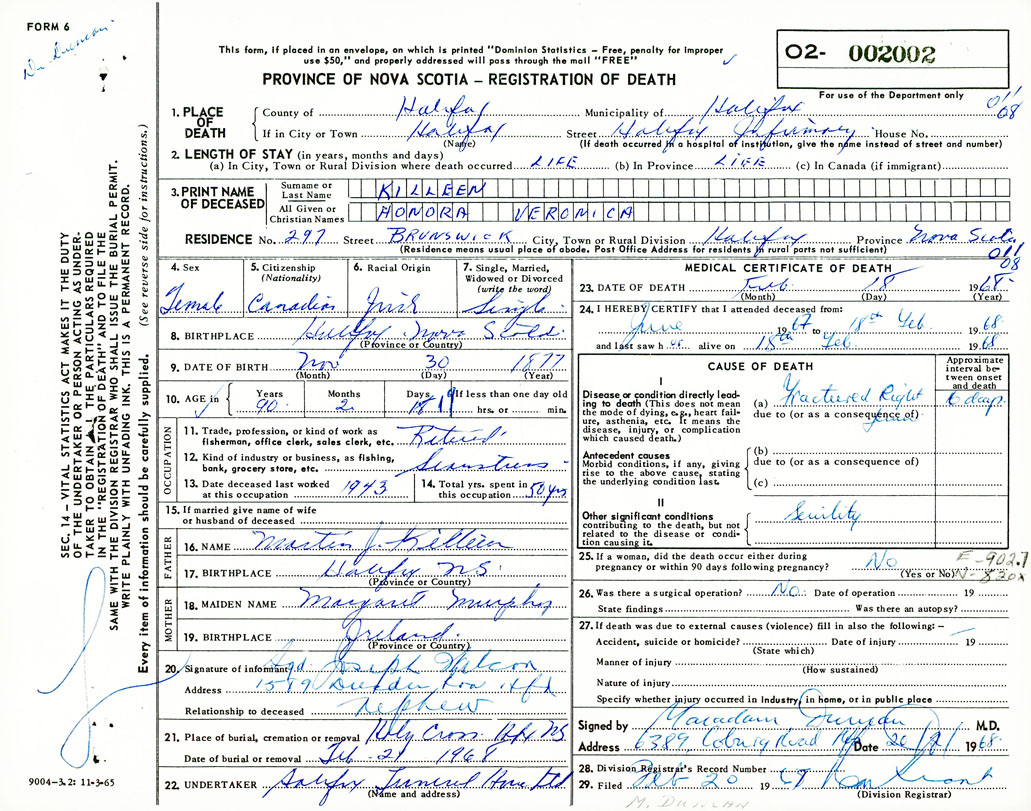 FORM 6
Dr. Duncan
This form, if placed in an envelope, on which is printed "Dominion Statistics – Free, penalty for improper
use $50," and properly addressed will pass through the mail "FREE"
PROVINCE OF NOVA SCOTIA – REGISTRATION OF DEATH
02- 002002
For use of the Department only
011
08
1. PLACE OF DEATH
County of Halifax Municipality of Halifax
If in City or Town Halifax Street Halifax Infirmary House No.
(Name) (If death occurred in a hospital of institution, give the name instead of street and number)
2. LENGTH OF STAY (in years, months and days)
(a) In City, Town or Rural Division where death occurred LIFE (b) In Province LIFE (c) In Canada (if immigrant)
3. PRINT NAME OF DECEASED
Surname or Last Name KILLEEN
All Given or Christian Names HONORA VERONICA
RESIDENCE No. 297 Street BRUNSWICK City, Town or Rural Division Halifax Province Nova Scotia
(Residence means usual place of abode. Post Office Address for residents in rural parts not sufficient)
011
08
4. Sex Female
5. Citizenship (Nationality) Canadian
6. Racial Origin Irish
7. Single, Married, Widowed or Divorced (write the word) Single
8. BIRTHPLACE Halifax Nova Scotia
(Province or Country)
9. DATE OF BIRTH Nov 30 1877
(Month) (Day) (Year)
10. AGE in Years 90 Months 2 Days 18 If less than one day old
hrs. or min.
OCCUPATION
11. Trade, profession, or kind of work as fisherman, office clerk, sales clerk, etc. Retired
12. Kind of industry or business, as fishing, bank, grocery store, etc. Seamstress
13. Date deceased last worked at this occupation 1943
14. Total yrs. spent in this occupation 50 yrs
15. If married give name of wife or husband of deceased
FATHER
16. NAME Martin J. Killeen
17. BIRTHPLACE Halifax N.S.
(Province or Country)
MOTHER
18. MAIDEN NAME Margaret Murphy
19. BIRTHPLACE Ireland
(Province or Country)
20. Signature of informant Sgd. Joseph
Address 1579 Dresden Row Hfx
Relationship to deceased nephew
21. Place of burial, cremation or removal Holy Cross Hfx NS
Date of burial or removal Feb - 21 1968
22. UNDERTAKER Halifax Funeral Home Ltd
(Name and address)
MEDICAL CERTIFICATE OF DEATH
23. DATE OF DEATH Feb. 18 1968
(Month) (Day) (Year)
24. I HEREBY CERTIFY that I attended deceased from:
June 1967 to 18th Feb. 1968
and last saw h er alive on 18th Feb 1968
CAUSE OF DEATH
Approximate interval between onset and death
I
Disease or condition directly leading to death (This does not mean the mode of dying, e.g., heart failure, asthenia, etc. It means the disease, injury, or complication which caused death.)
(a) Fractured Right 6 days
due to (or as a consequence of) Femur
Antecedent causes
Morbid conditions, if any, giving rise to the above cause, stating the underlying condition last.
(b)
due to (or as a consequence of)
(c)
II
Other significant conditions contributing to the death, but not related to the disease or condition causing it.
Senility
25. If a woman, did the death occur either during pregnancy or within 90 days following pregnancy? No
(Yes or No)
E-902.1
N-820x
26. Was there a surgical operation? No. Date of operation 19
State findings Was there an autopsy?
27. If death was due to external causes (violence) fill in also the following: –
Accident, suicide or homicide? Date of injury 19
(State which)
Manner of injury
(How sustained)
Nature of injury
Specify whether injury occurred in Industry, in home, or in public place
Signed by Macadam Duncan M.D.
Address 6389 Coburg Road Hfx Date 1968
28. Division Registrar's Record Number
29. Filed Feb 20 19
(Division Registrar)
M. DUNCAN
SEC. 14 – VITAL STATISTICS ACT MAKES IT THE DUTY
OF THE UNDERTAKER OR PERSON ACTING AS UNDER-
TAKER TO OBTAIN ALL THE PARTICULARS REQUIRED
IN THE "REGISTRATION OF DEATH" AND TO FILE THE
SAME WITH THE DIVISION REGISTRAR WHO SHALL ISSUE THE BURIAL PERMIT.
WRITE PLAINLY WITH UNFADING INK. THIS IS A PERMANENT RECORD.
Every item of information should be carefully supplied. (See reverse side for instructions.)
9004-3.2: 11-3-65